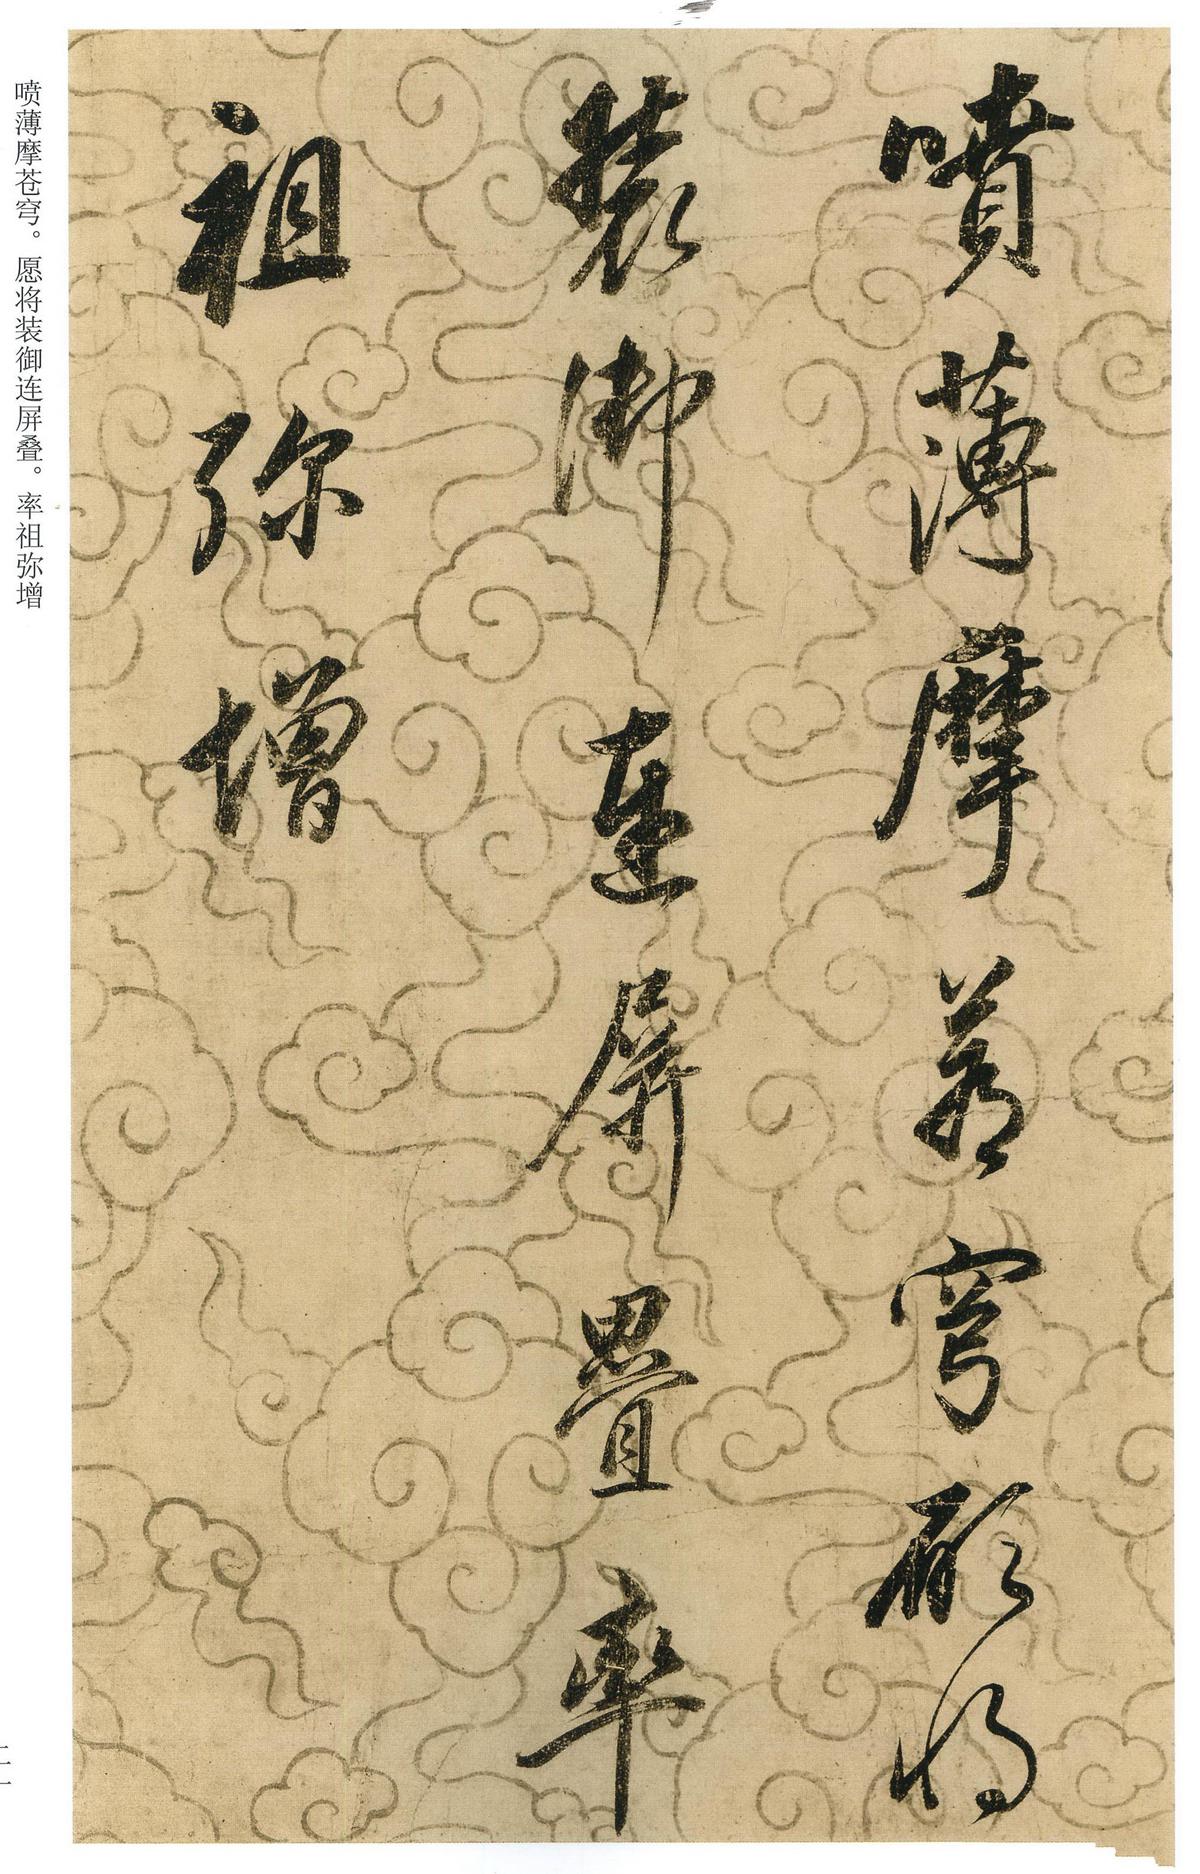 噴薄摩蒼穹願將
裝御連屏疊率
祖弥增
喷薄摩苍穹。愿将装御连屏叠。率祖弥增